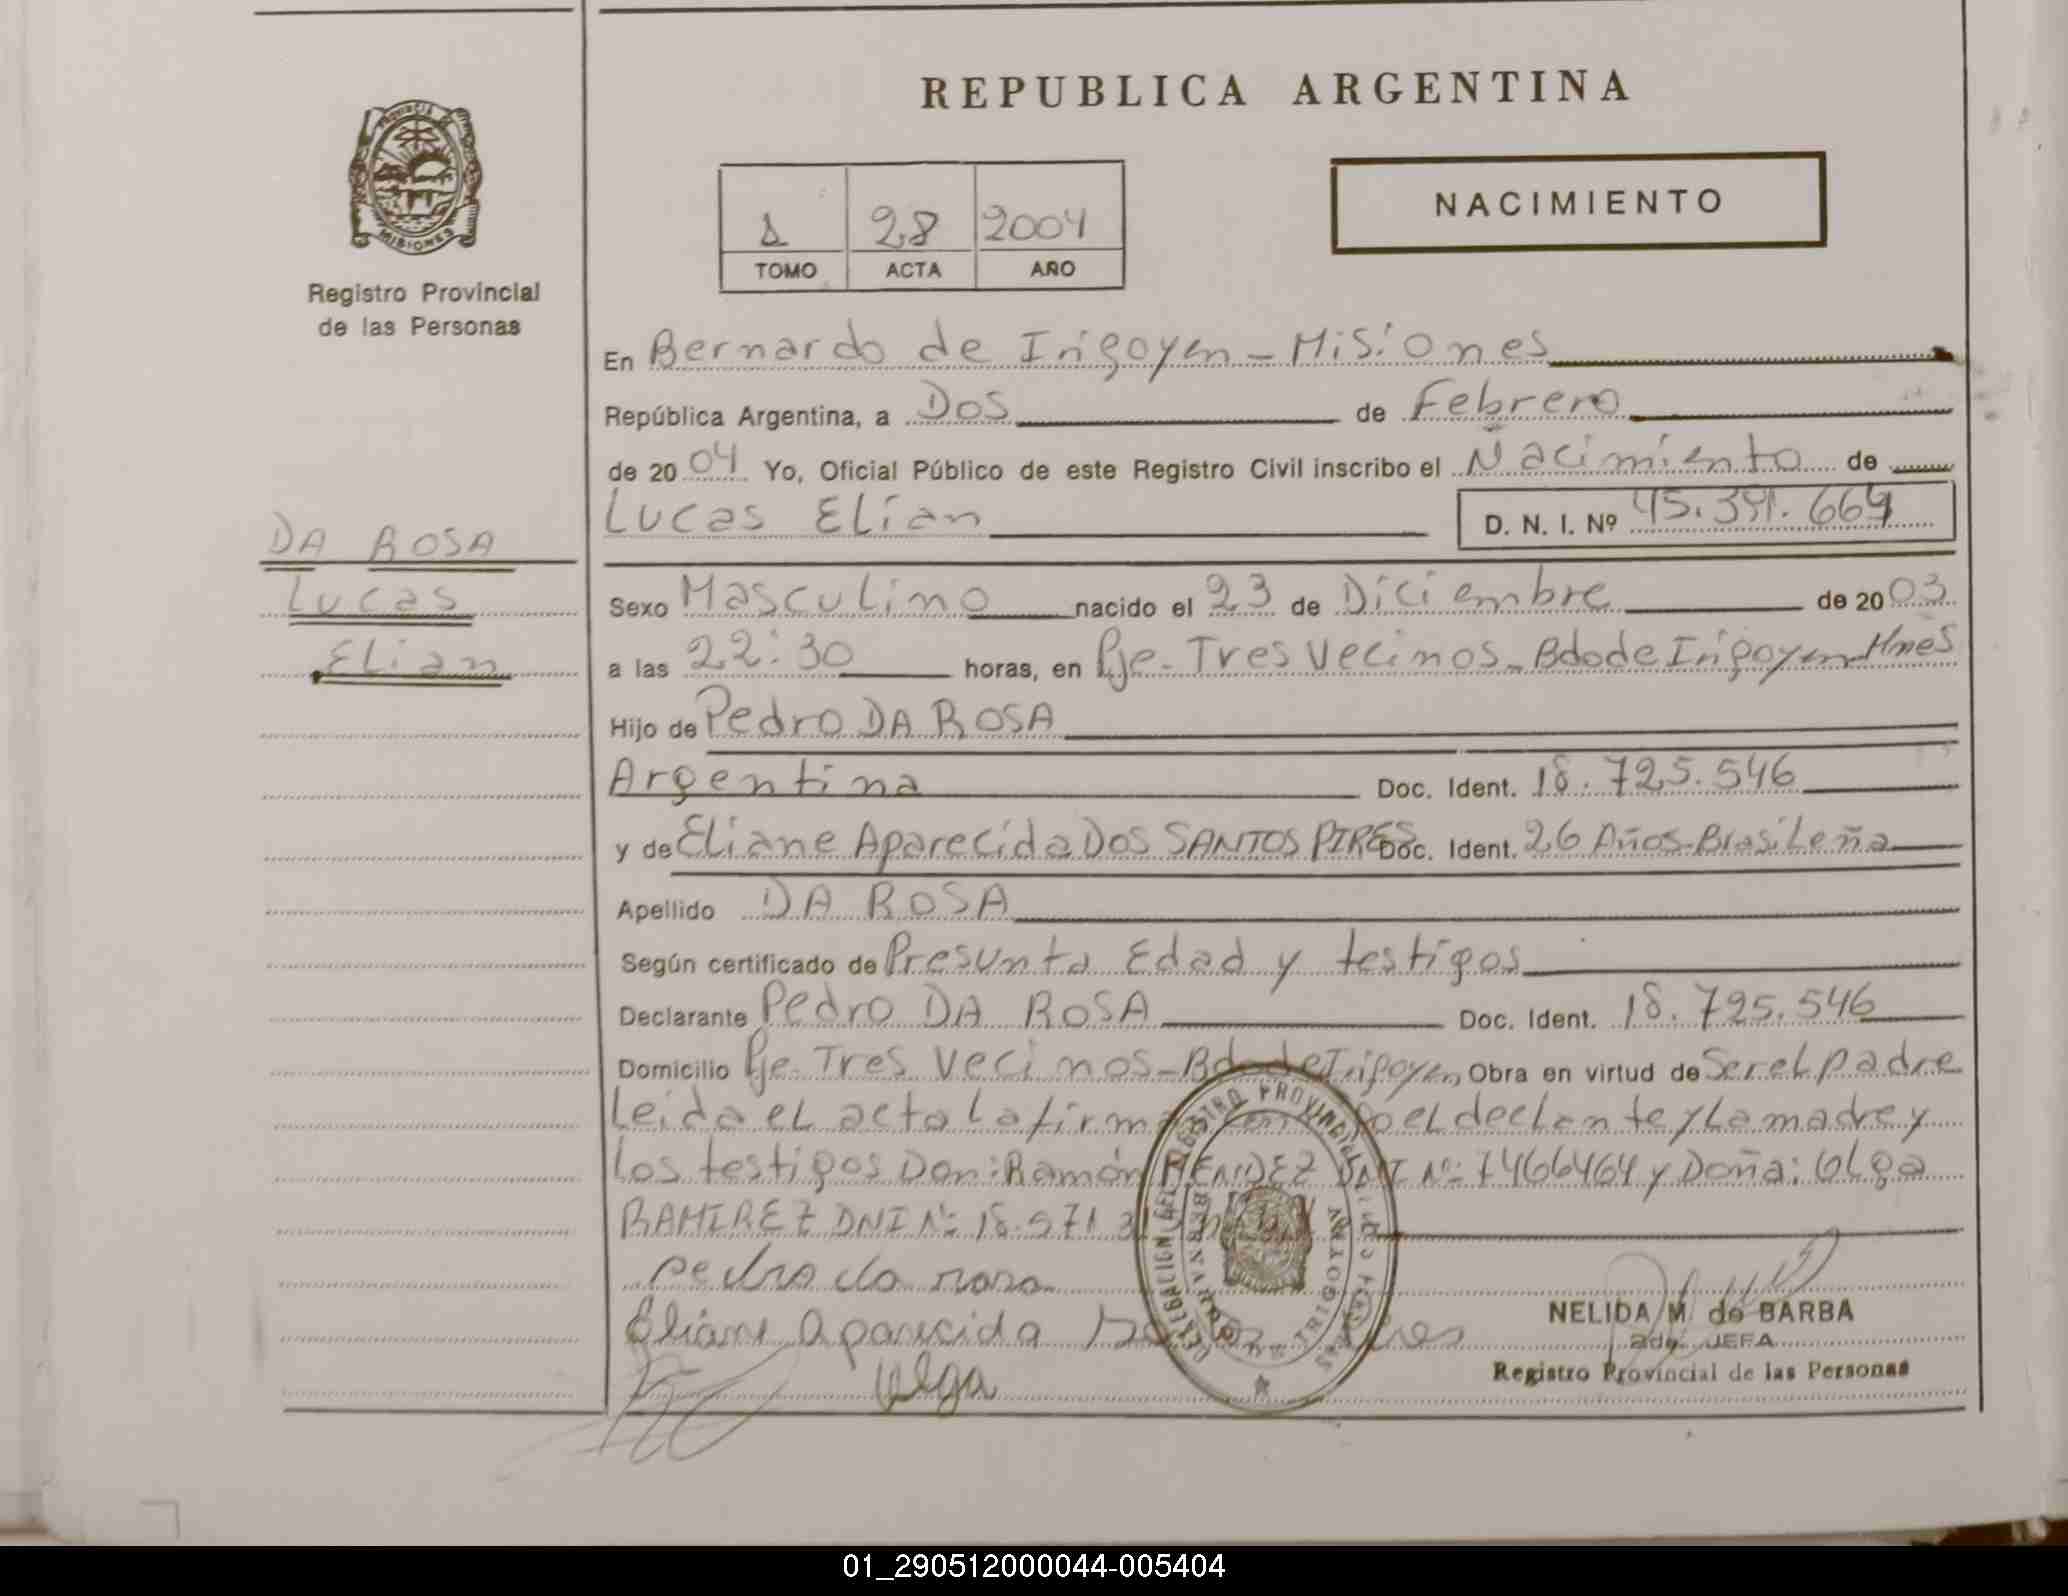 REPUBLICA ARGENTINA
PROVINCIA DE
MISIONES
Registro Provincial
de las Personas
1 28 2004
TOMO ACTA AÑO
NACIMIENTO
En Bernardo de Irigoyen - Misiones
República Argentina, a Dos de Febrero
de 2004 Yo, Oficial Público de este Registro Civil inscribo el Nacimiento de
Lucas Elian D. N. I. Nº 45.391.664
DA ROSA
Lucas
Elian
Sexo Masculino nacido el 23 de Diciembre de 2003
a las 22:30 horas, en Pje. Tres Vecinos - Bdo de Irigoyen Mnes
Hijo de Pedro DA ROSA
Argentina Doc. Ident. 18.725.546
y de Eliane Aparecida DOS SANTOS PIRES Doc. Ident. 26 Años-Brasileña
Apellido DA ROSA
Según certificado de Presunta Edad y testigos
Declarante Pedro DA ROSA Doc. Ident. 18.725.546
Domicilio Pje. Tres Vecinos - Bdo de Irigoyen Obra en virtud de Ser el padre
Leida el acta la firma el declante y La madre y
los testigos Don: Ramón DNI Nº: 7466464 y Doña: Olga
RAMIREZ DNI Nº: 18.571.
Pedro da rosa
Eliane Aparecida
Olga
NELIDA M. de BARBA
JEFA
Registro Provincial de las Personas
01_290512000044-005404